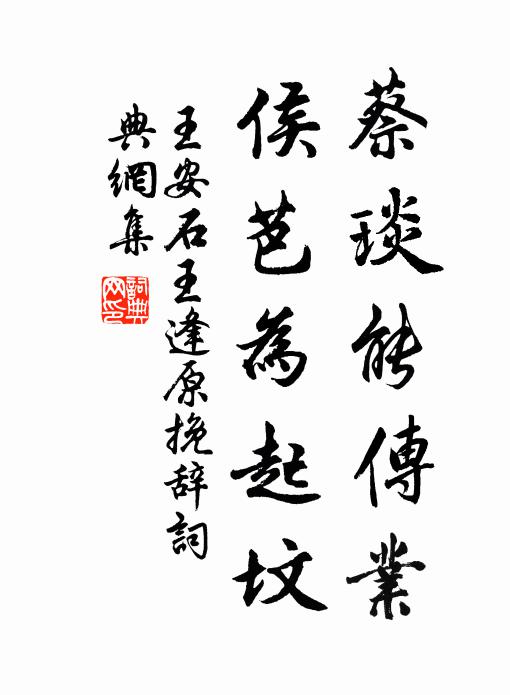 蔡琰能傳業
侯芭為起墳
王安石王逢原挽辞詞
典網集
詞典
网印